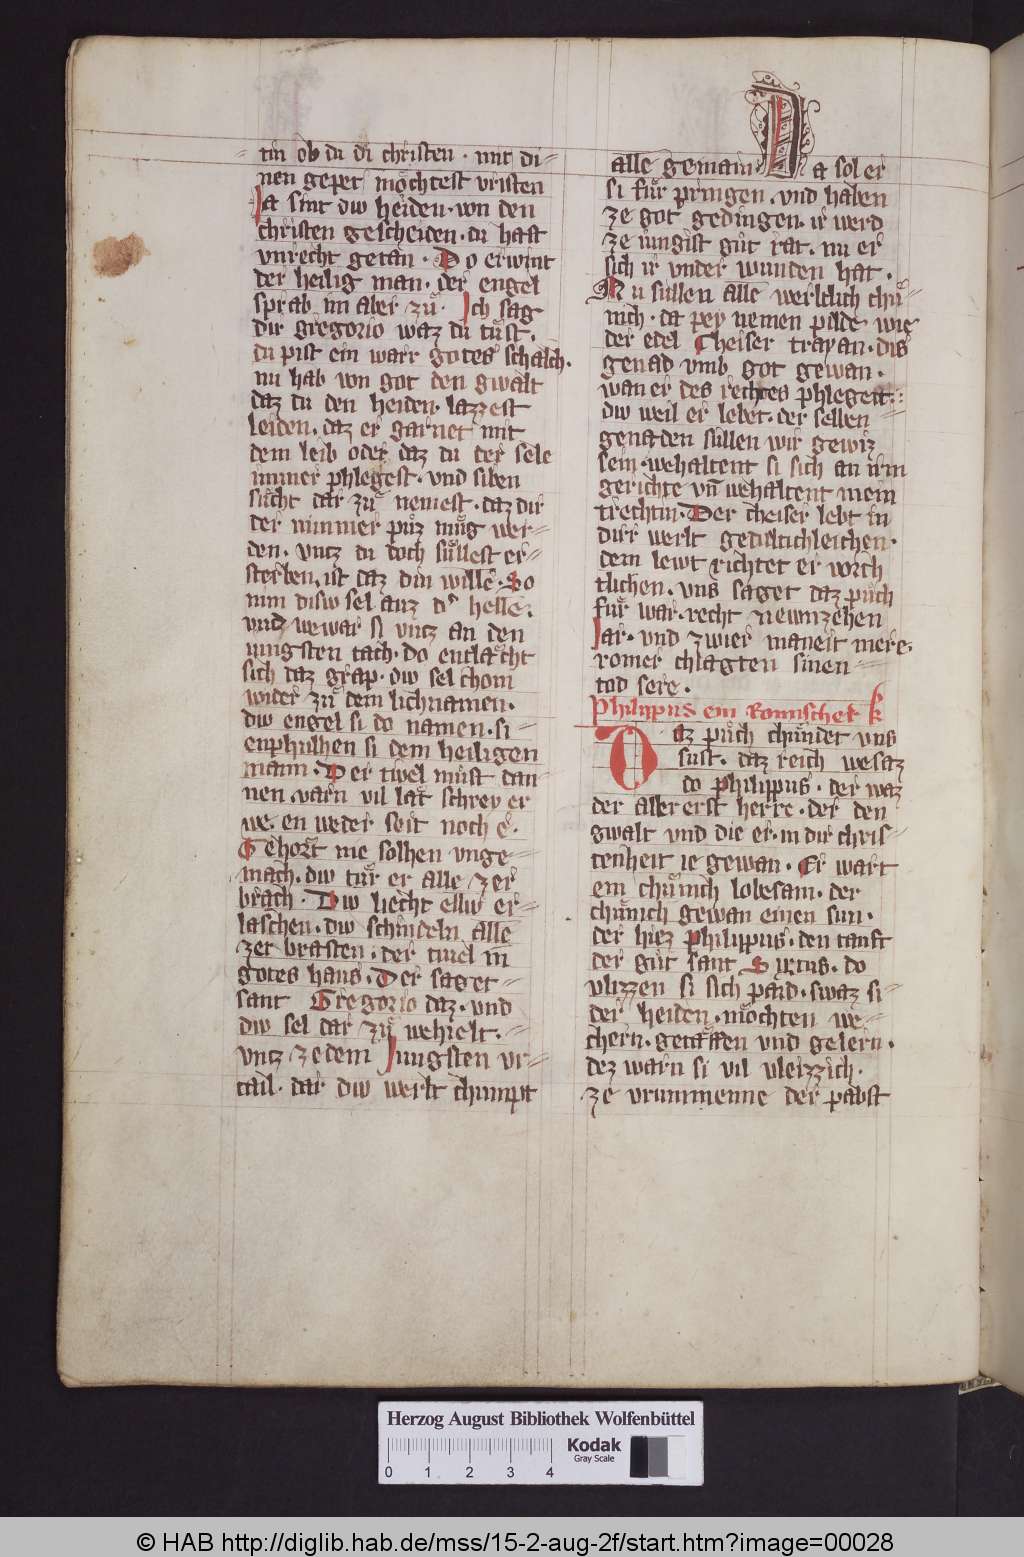 tin ob du di christen · mit di=
nen gepet moͤchtest vristen
Ja sint diw heiden · von den
christen gescheiden · du hast
vnrecht getan · Do erwint
der heilig man · der engel
sprah im aber zuͦ · Ich sag
dir gregorio waz du tuͦst ·
du pist ein warr gotes schalch ·
nu hab von got den gwalt
daz du den heiden · lazzest
leiden · daz er garnet mit
dem leib oder daz du der sele
immer phlegest · vnd siben
suͤcht dar zuͦ nemest · daz dir
der nimmer puͦz muͤg wer=
den · vntz du doch suͤllest er=
sterben · ist daz din wille · So
nim disiw sel auz d' helle ·
vnd wewar si vntz an den
iungsten tach · do entlaͤcht
sich daz grap · diw sel chom
wider zuͦ dem lichnamen ·
diw engel si do namen · si
enphulhen si dem heiligen
mann · Der tivel must dan
nen varn vil lat schrey er
we · en weder seit noch e ·
Gehort nie solhen vnge=
mach · diw tuͤr er alle zer
brach · Diw liecht elliw er=
laschen · diw schindeln alle
zer brasten · der tivel in
gotes haus · Der saget=
sant Gregorio daz · vnd
diw sel dar zuͦ wehielt ·
vntz ze dem Jungsten vr=
tail · dar diw werlt chumpt
alle gemain · Da sol er
si fuͤr pringen · vnd haben
ze got gedingen · ir werd
ze iungist guͦt rat · nu er
sich ir vnder wunden hat ·
Nu sullen alle werltlich chuͤ=
nich · da pey nemen pilde wie
der edel Cheiser trayan · dis
genad vmb got gewan ·
wan er des rechtes phlegett ·
diw weil er lebet · der selben=
genaden suͤllen wir gewiz
sein · wehaltent si sich an irm
gerichte vn̄ wehaltent mein
trechtin · Der cheiser lebt in
dirr werlt gedultichleichen ·
dem lewt richtet er vorch
tlichen · vns saget daz puͦch
fuͤr war · recht newnzehen
Jar · vnd zwier maneit mere ·
romer chlagten sinen=
tod sere ·
Philippus ein Romischer k
Daz puͦch chuͤndet vns
sust · daz reich wesaz
do philippus · der waz
der aller erst herre · der den
gwalt vnd die er · in dir chris=
tenheit ie gewan · Er wart
ein chuͤnich lobesam · der
chuͤnich gewan einen sun ·
der hiez philippus · den tauft
der guͦt sant Sixtus · do
vlizzen si sich paid · swaz si=
der heiden · moͤchten we=
chern · getauffen vnd gelern ·
dez warn si vil vleizzich ·
ze vrummenne der pabst
Herzog August Bibliothek Wolfenbüttel
0 1 2 3 4
Kodak
Gray Scale
© HAB http://diglib.hab.de/mss/15-2-aug-2f/start.htm?image=00028